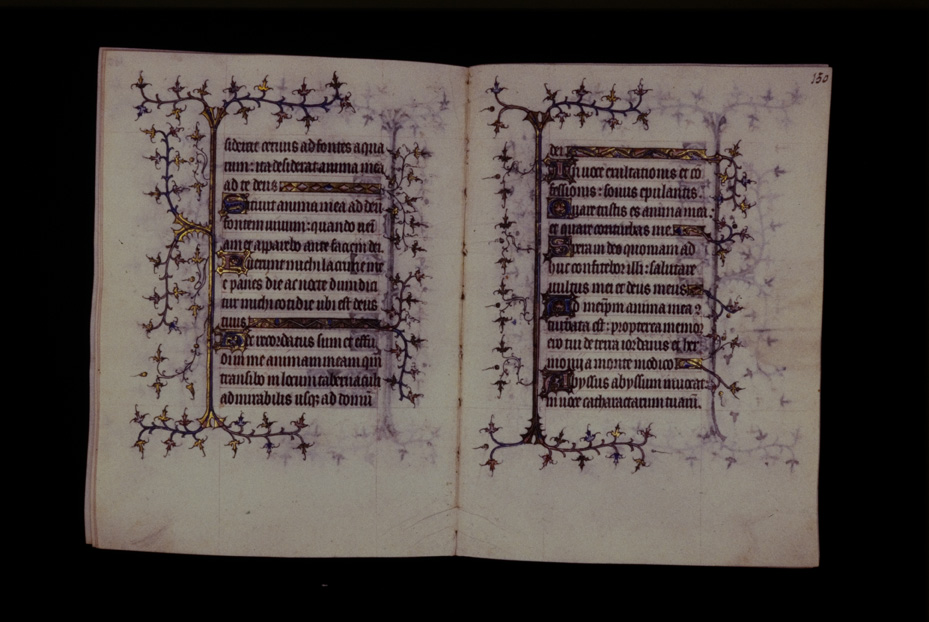 siderat cervus ad fontes aqua
rum: ita desiderat anima mea
ad te deus
Sitivit anima mea ad deū
fontem vivum: quando veī
am et apparebo ante faciem dei.
Fuerunt michi lacrime me
e panes die ac nocte dum dici
tur michi cotidie ubi est deus
tuus
Hec recordatus sum et effu
di in me animam meam: qm̄
transibo in locum tabernaculi
admirabilis usq; ad domū
150
dei.
In voce exultationis et cō
fessionis: sonus epulantis.
Quare tristis es anima mea:
et quare conturbas me.
Spera in deo quoniam ad
huc confitebor illi: salutare
vultus mei et deus meus
Ad meipm̄ anima mea cō
turbata est: propterea memor
ero tui de terra iordanis et her
monij a monte modico
Abyssus abyssum invocat:
in voce catharactarum tuarū.